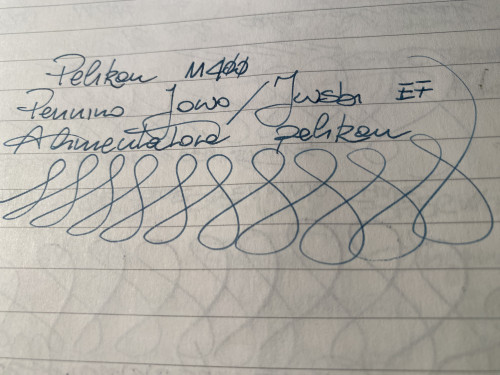 Pelikan M400
Pennino Jowo / Jwsbr EF
Alimentatore pelikan